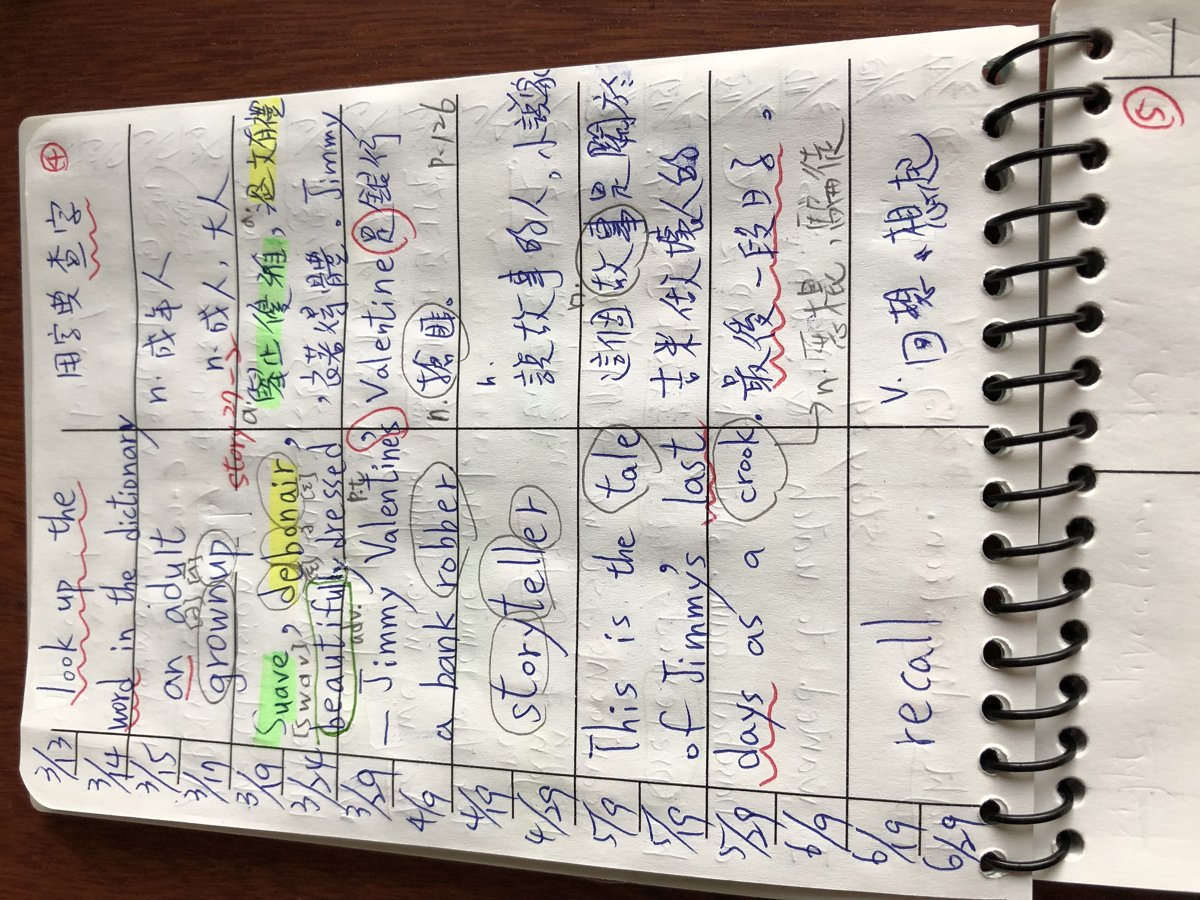 ④
3/13
look up the
用字典查字
3/14
word in the dictionary
3/15
an adult
n. 成年人
3/17
grownup
n. 成人, 大人
story 27-2
3/19
Suave, debonair,
a. 舉止優雅, 溫文有禮
[swɑv]
3/24
beautifully dressed
, 衣著得體. Jimmy
adv.
p.t.
3/29
— Jimmy Valentine's
Valentine是銀行
4/9
a bank robber
n. 搶匪。
p.126
4/19
storyteller
n.
說故事的人, 小說家
4/29
5/9
This is the tale
n.
這個故事是關於
5/15
of Jimmy's last
吉米做壞人的
5/29
days as a crook.
最後一段日子。
6/9
→n. 惡棍, 騙徒
6/19
recall
v. 回想、想起
6/29
⑤